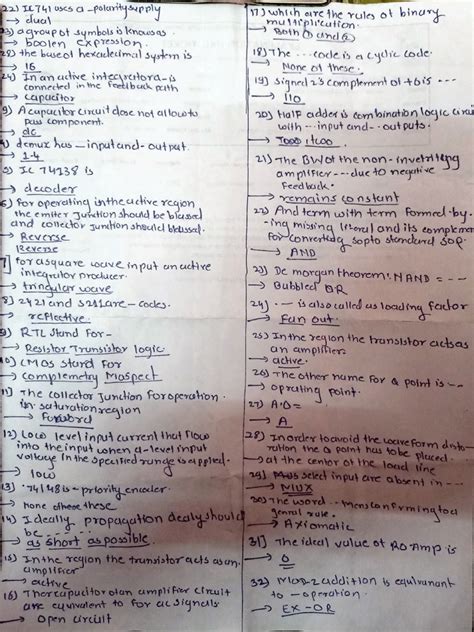 22) IC 741 uses a -polarity supply
→ dual
23) a group of symbols is known as
→ boolen expression.
28) the base of hexadecimal system is
→ 16
24) In an active integrator a - is
connected in the feedback path
→ capacitor
9) A capacitor circuit dose not allow to
pass component.
→ dc
demux has - input and - output.
→ 1-4
IC 74138 is
→ decoder
For operating in the active region
the emiter junction should be biassed
and collector junction should biassed.
→ Reverse
Reverse
7] for a square wave input an active
integrator producer.
→ tringular wave
8) 2421 and 5211 are - codes.
→ reflective.
9) RTL stand For -
→ Resistor Transistor logic.
10) CMOS stand for
→ complemetry Mospect
11) The collector Junction For operation
in saturation region
→ Forword
12) Low level input current that flow
into the input when a-level input
voltage in the specified range is applied.
→ low
13) 74148 is - priority encoder.
→ None of these
14) Ideally propagation dealy should
be - - -
→ as short as possible.
15) In the region the transistor acts as an
amplifier
→ active
16) The capacitor of an amplifier circuit
are equivalent to for ac signals
→ Open circuit
17) which are the rules of binary
multiplication.
→ Both 1 and 2
18) The ... code is a cyclic code.
→ None of these.
19) signed 2's complement of +6 is ---
→ 110
20) Half adder is combination logic circuit
with --- input and -- outputs.
→
21) The BW of the non-inverting
amplifier --- due to negative
feedback.
→ remains constant
22) And term with term formed by -
ing missing literal and its complement
for converting sop to standered SOP.
→ AND
23) De morgan theorem: NAND = --
→ Bubbled OR
24) --- is also called as loading factor
→ Fan out.
25) In the region the transistor acts as
an amplifier.
→ active.
26) The other name for Q point is --
→ oprating point.
27) A.0=
→ A
28) In order to avoid the waveform disto-
ration the Q point has to be placed.
→ at the center of the load line
29) select input are absent in ---
→ MIUX
30) The word -- Mens conforming to a
genral rule.
→ Axiomatic
31] The ideal value of RO Amp is
→ 0
32) MOD-2 addition is equivanant
to - operation.
→ EX-OR